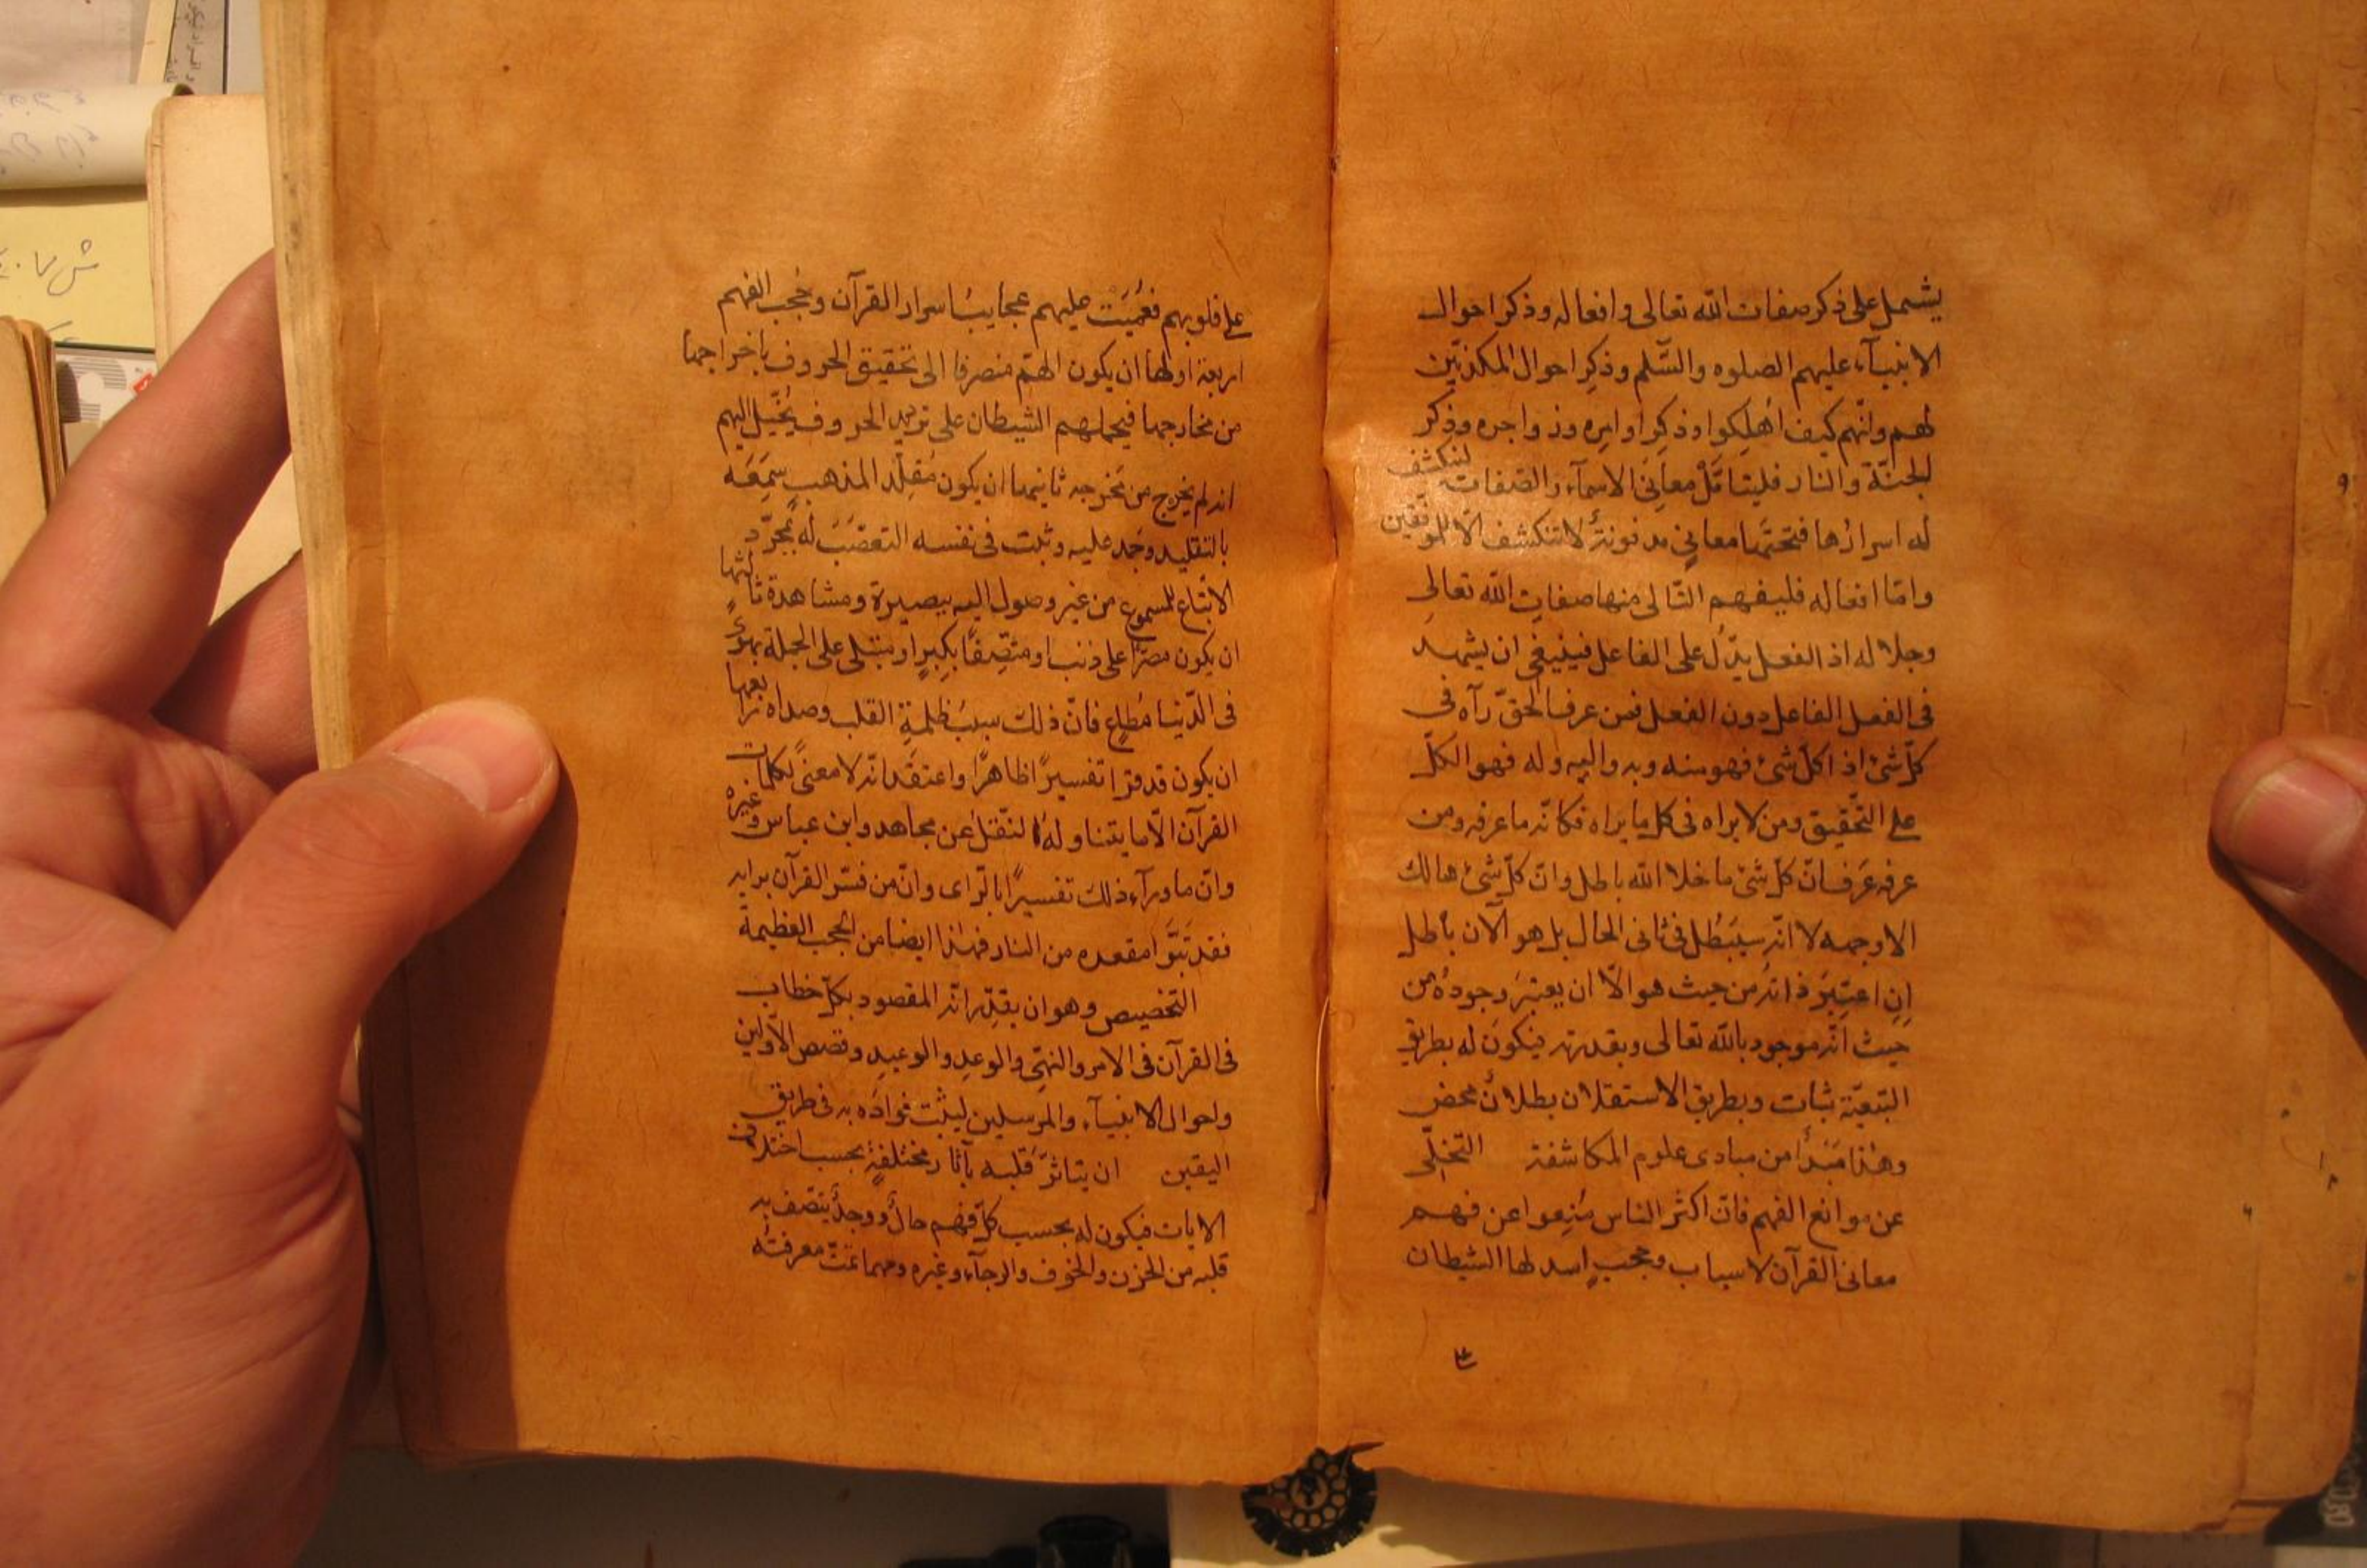 يشمل على ذكر صفات الله تعالى وافعاله وذكر احوال
الانبيآء عليهم الصلوه والسّلم وذكر احوال المكذبين
لهم وانّهم كيف اُهلِكوا وذكر اوامره وزواجره وذكر
الجنّة والنار فليتامّل معاني الاسمآء والصّفات لتنكشف
له اسرارها فتحتها معاني مدفونةٌ لا تنكشف الّا للموفّقين
وامّا افعاله فليفهم التّالى منها صفات الله تعالى
وجلاله اذ الفعل يدّل على الفاعل فينبغى ان يشهد
فى الفعل الفاعل دون الفعل فمن عرف الحقّ رآه فى
كلّ شئ اذ كلّ شئ فهو منه وبه واليه وله فهو الكلّ
على التّحقيق ومن لا يراه فى كل ما يراه فكانّه ما عرفه ومن
عرفه عَرَف انّ كلّ شئ ما خلا الله باطل وانّ كلّ شئ هالك
الا وجهه لا انّه سيَبطُل فى ثانى الحال بل هو الآن باطل
اِنِ اعتُبِرَ ذاتُه من حيث هو الّا ان يعتبرَ وجودُه من
حيث انّه موجود بالله تعالى وبقدرته فيكون له بطريق
التّبعيّة ثبات وبطريق الاستقلال بطلانٌ محض
وهذا مَبدأ من مبادى علوم المكاشفة التّخلّى
عن موانع الفهم فانّ اكثر الناس مُنِعوا عن فهم
معانى القرآن لاسباب وحجبٍ اسدلها الشيطان
على قلوبهم فعُمِيَت عليهم عجايبُ اسرار القرآن وحُجب الفهم
اربعة اولها ان يكون الهمّ منصرفا الى تحقيق الحروف باخراجها
من مخارجها فيحملهم الشيطان على ترديد الحروف يُخيّل اليهم
انه لم يخرج من مَخرجه ثانيها ان يكون مُقلّد المذهبٍ سَمِعَه
بالتقليد وجَمد عليه وثبت فى نفسه التعصّبَ له بمجرّد
الاتّباع للمسموع من غير وصول اليه ببصيرة ومشاهدة ثالثها
ان يكون مصرّا على ذنب او متّصِفًا بكِبرٍ او مبتلى على الجملة بهوًى
فى الدّنيا مُطاعٍ فانّ ذلك سببُ ظلمةِ القلب وصداه رابعها
ان يكون قد قرا تفسيرًا ظاهرًا واعتقد انّه لا معنًى لكلمات
القرآن الّا ما يتناوله النّقل عن مجاهد وابن عباس وغيره
وانّ ما ورآء ذلك تفسيرًا بالرّاى وانّ من فسّر القرآن برايه
فقد تَبَوّا مقعده من النار فهذا ايضا من الحجب العظيمة
التخصيص وهو ان يقدّر انّه المقصود بكلّ خطاب
فى القرآن فى الامر والنهى والوعد والوعيد وقصص الاوّلين
واحوال الانبيآء والمرسلين ليثبّت فوادَه به فى طريق
اليقين ان يتاثّر قلبه بآثار مختلفةٍ بحسب اختلاف
الايات فيكون له بحسب كلّ فهم حالٌ ووجدٌ يتّصف به
قلبه من الحزن والخوف والرجآء وغيره ومهما تمّت معرفتُه